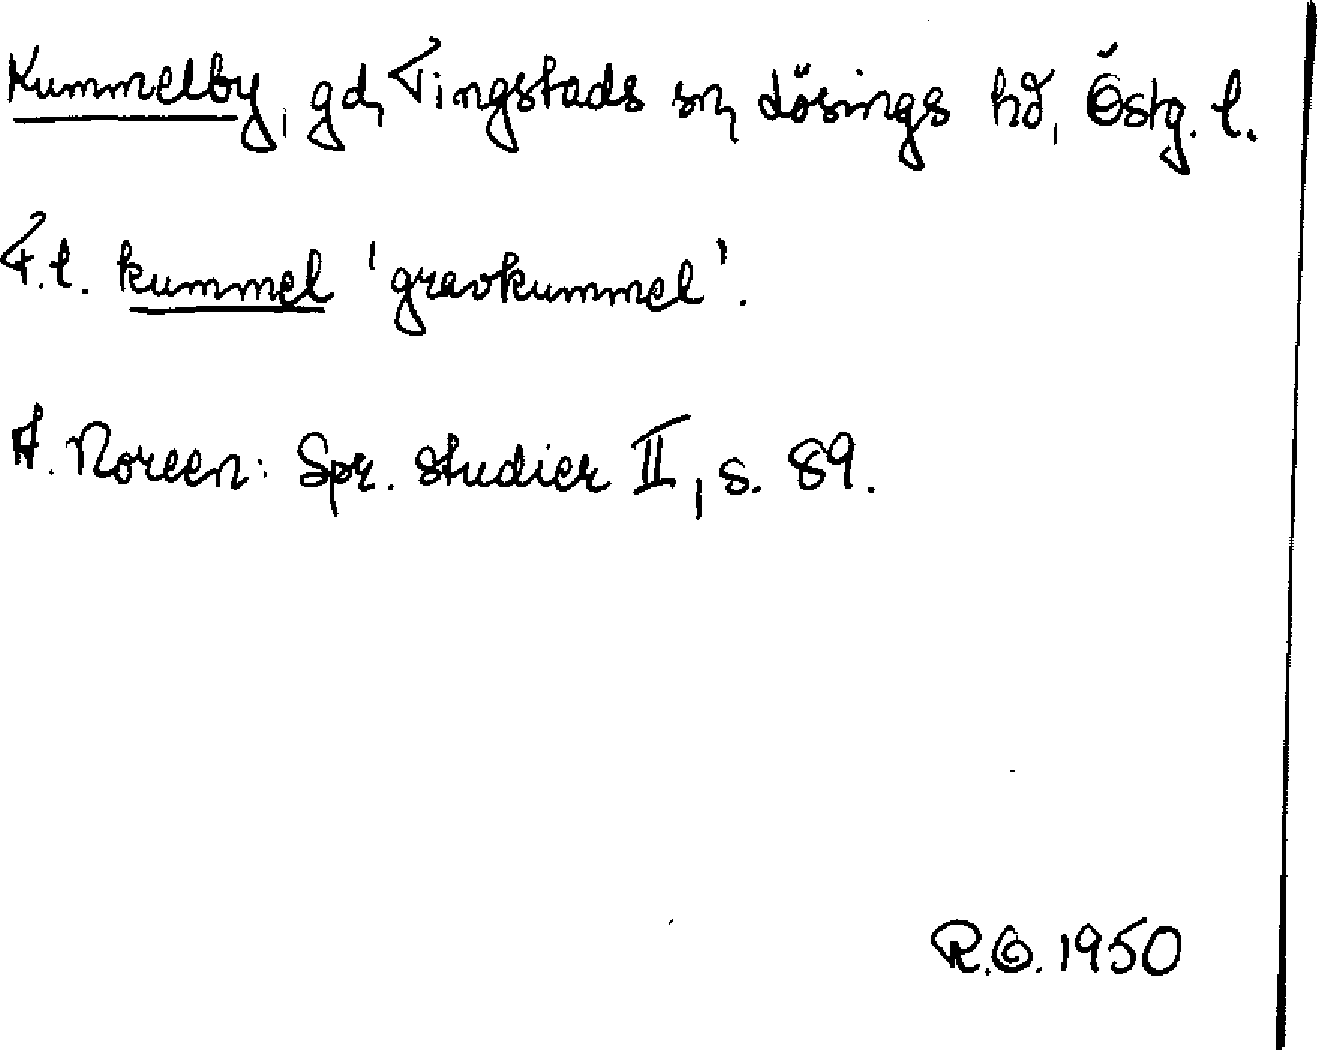 Kummelby, gd, Tingstads sn, Lösings hd, Östg. l.
F.l. kummel 'gravkummel'.
A. Noreen: Spr. studier II, s. 89.
R.O. 1950